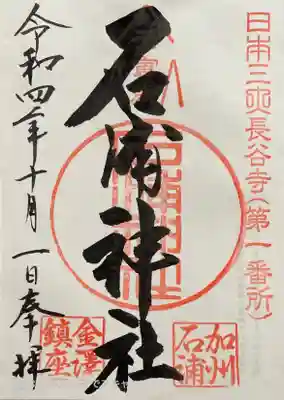 日本三所長谷寺(第一番所)
石浦神社
石浦神社
加州
石浦
金澤
鎮座
令和四年十月一日奉拝